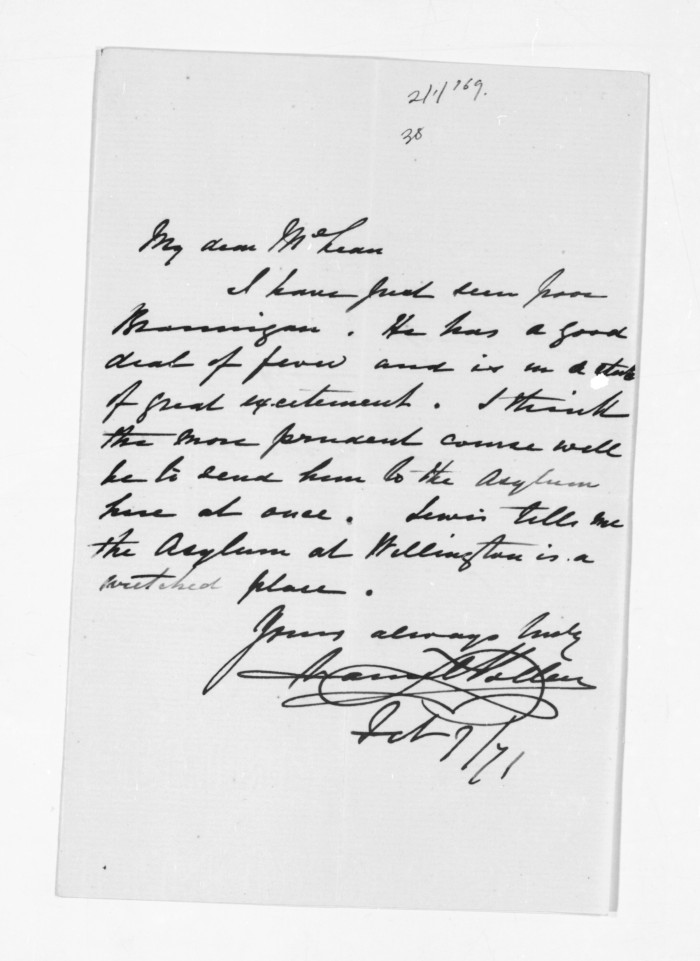 2/1/'69.
38
My dear McLean
I have just seen poor
Brannigan. He has a good
deal of fever and is in a state
of great excitement. I think
the more prudent course will
be to send him to the Asylum
here at once. Lewis tells me
the Asylum at Wellington is a
wretched place.
Yours always truly
Pollen
7/71